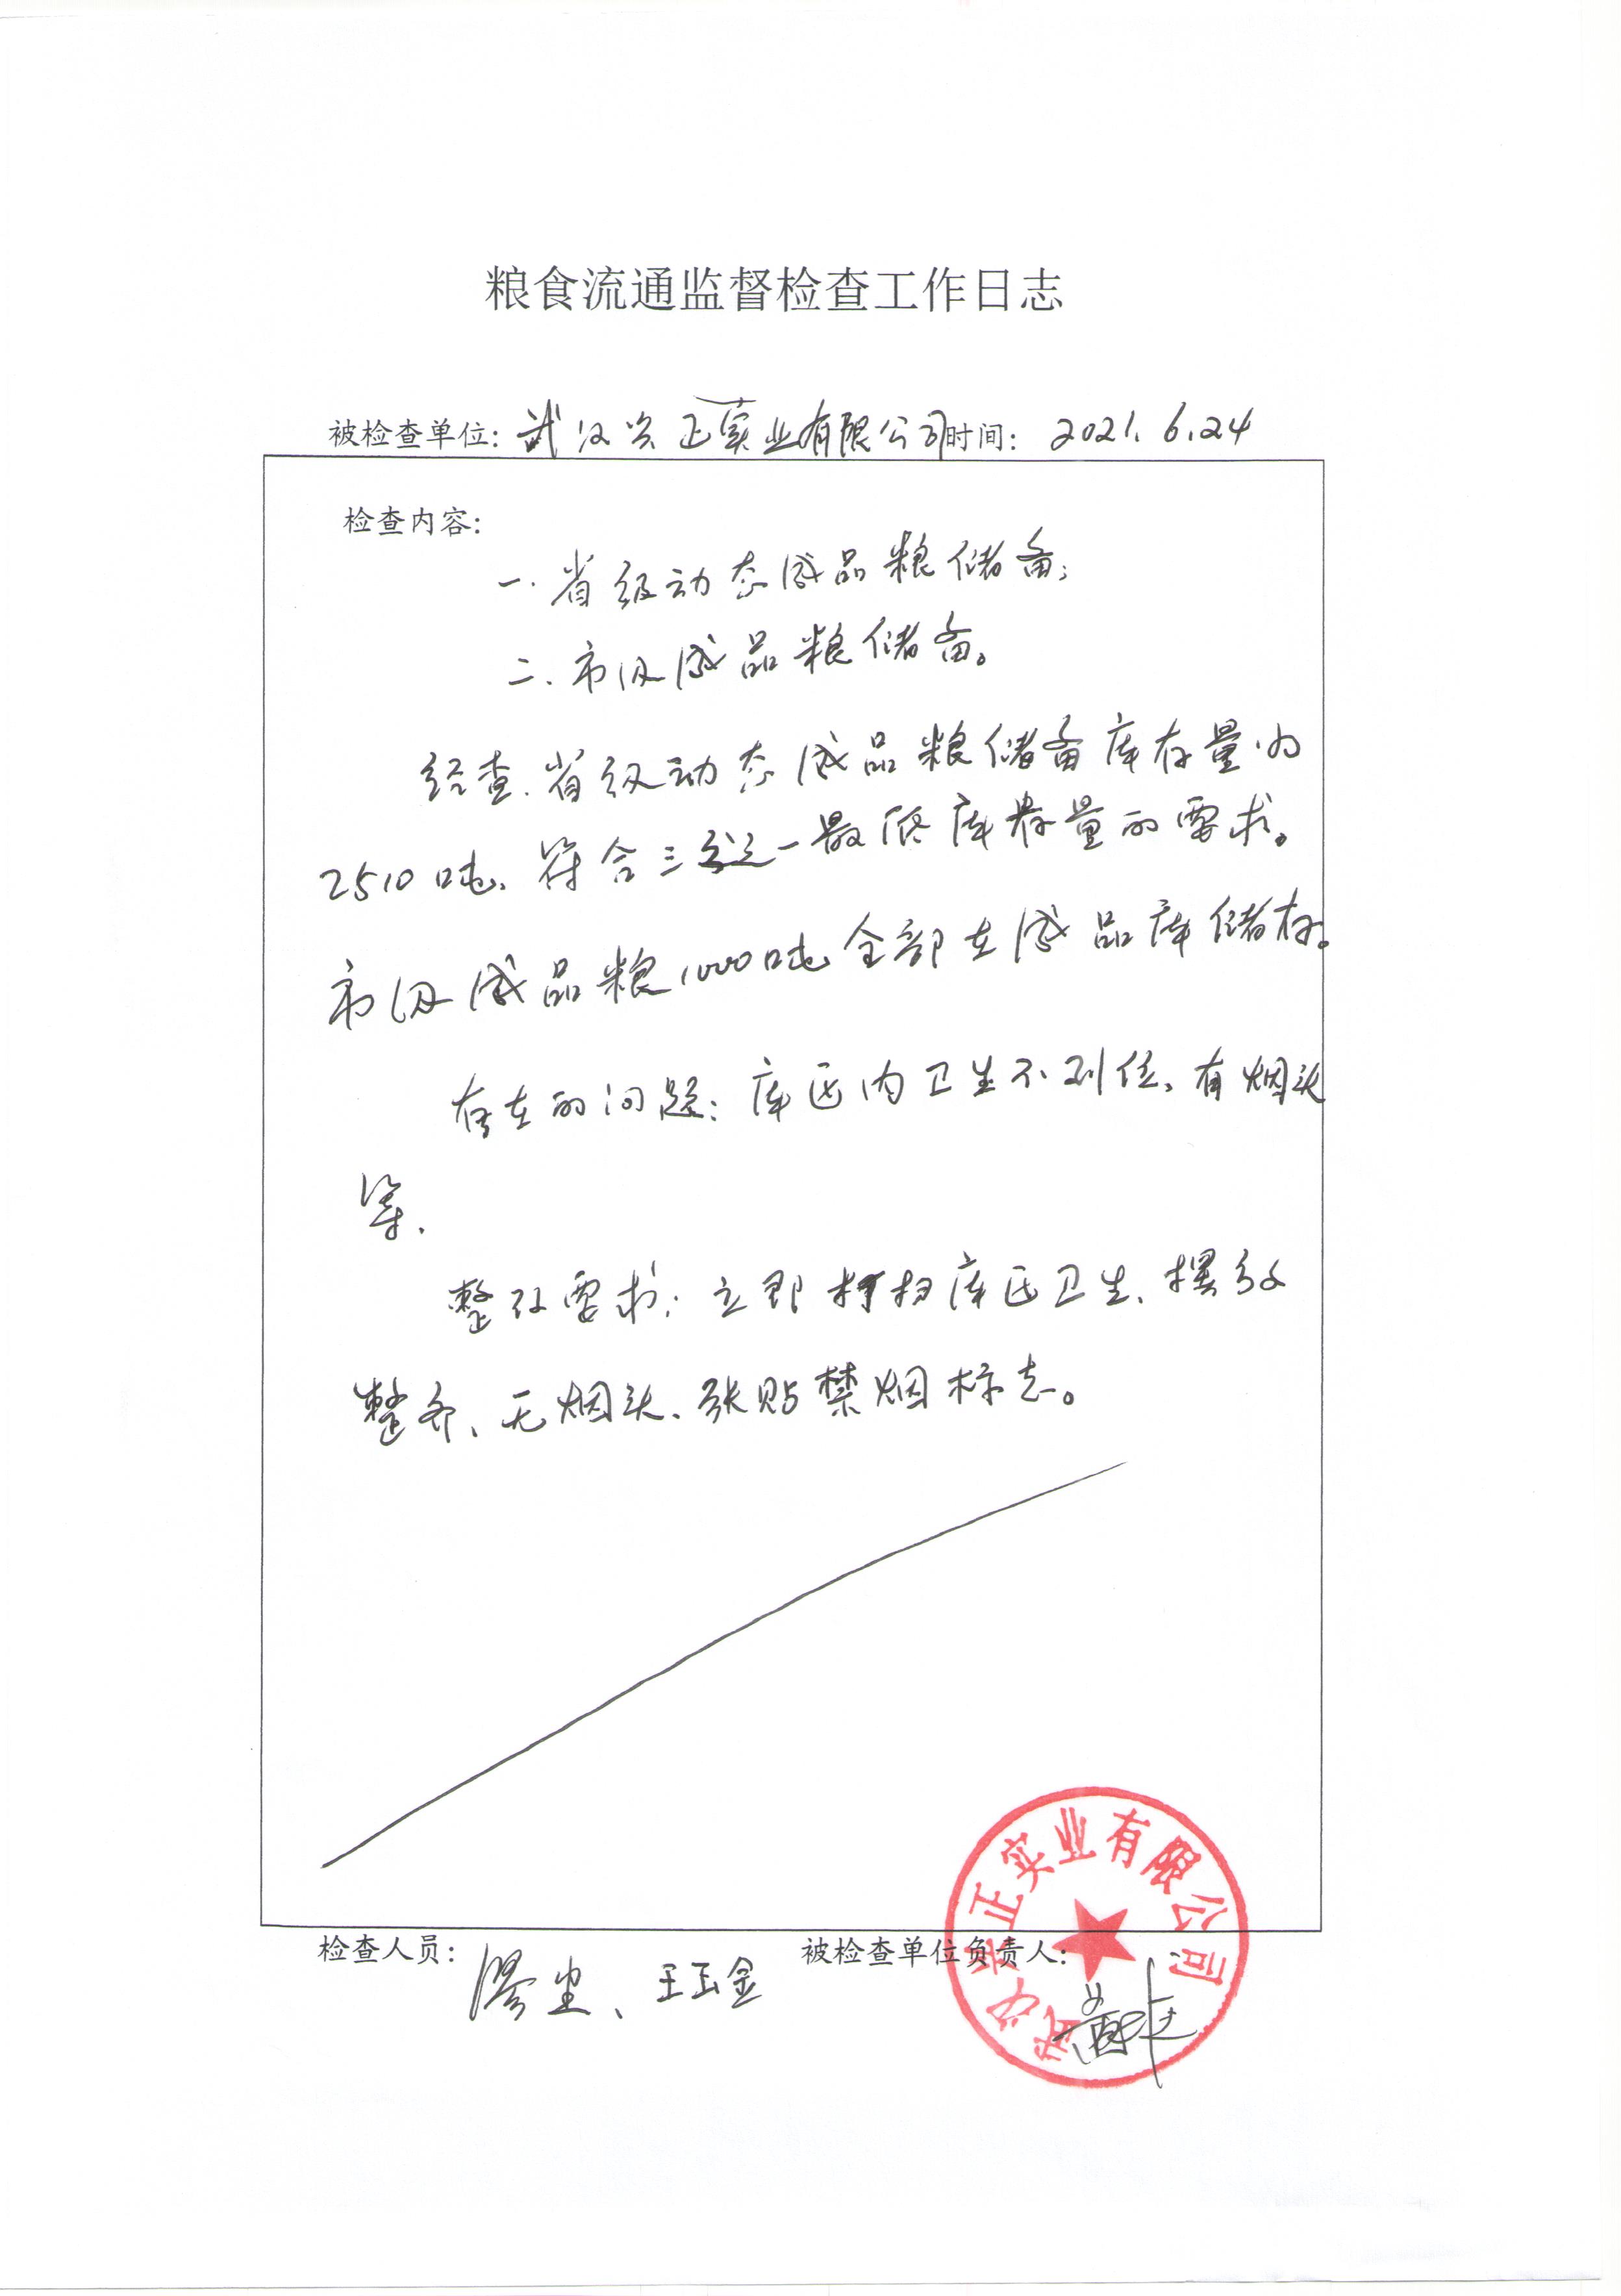 粮食流通监督检查工作日志
被检查单位：武汉兴正实业有限公司时间：2021.6.24
检查内容：
一.省级动态成品粮储备；
二.市级成品粮储备。
经查.省级动态成品粮储备库存量为
2510吨、符合三分之一最低库存量的要求。
市级成品粮1000吨全部在成品库储存。
存在的问题：库区内卫生不到位、有烟头
等.
整改要求：立即打扫库区卫生、摆放
整齐、无烟头、张贴禁烟标志。
检查人员：
、王玉金
被检查单位负责人：
武汉兴正实业有限公司